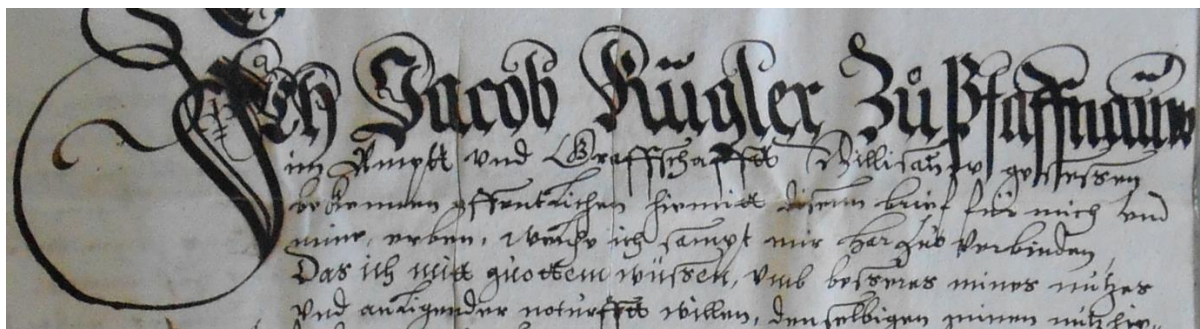 Ich Jacob Kügler Zů Pfaffnaüw
im Ampt und Graffschafft Willisauw gesessen
bekennen offentlichen hiemitt disem brief für mich und
mine erben, welche ich sampt mir harzuo verbinden,
Das ich mitt guottem wüssen, umb besseres mines nutzes
und anligender noturfft willen, denselbigen minen nutz